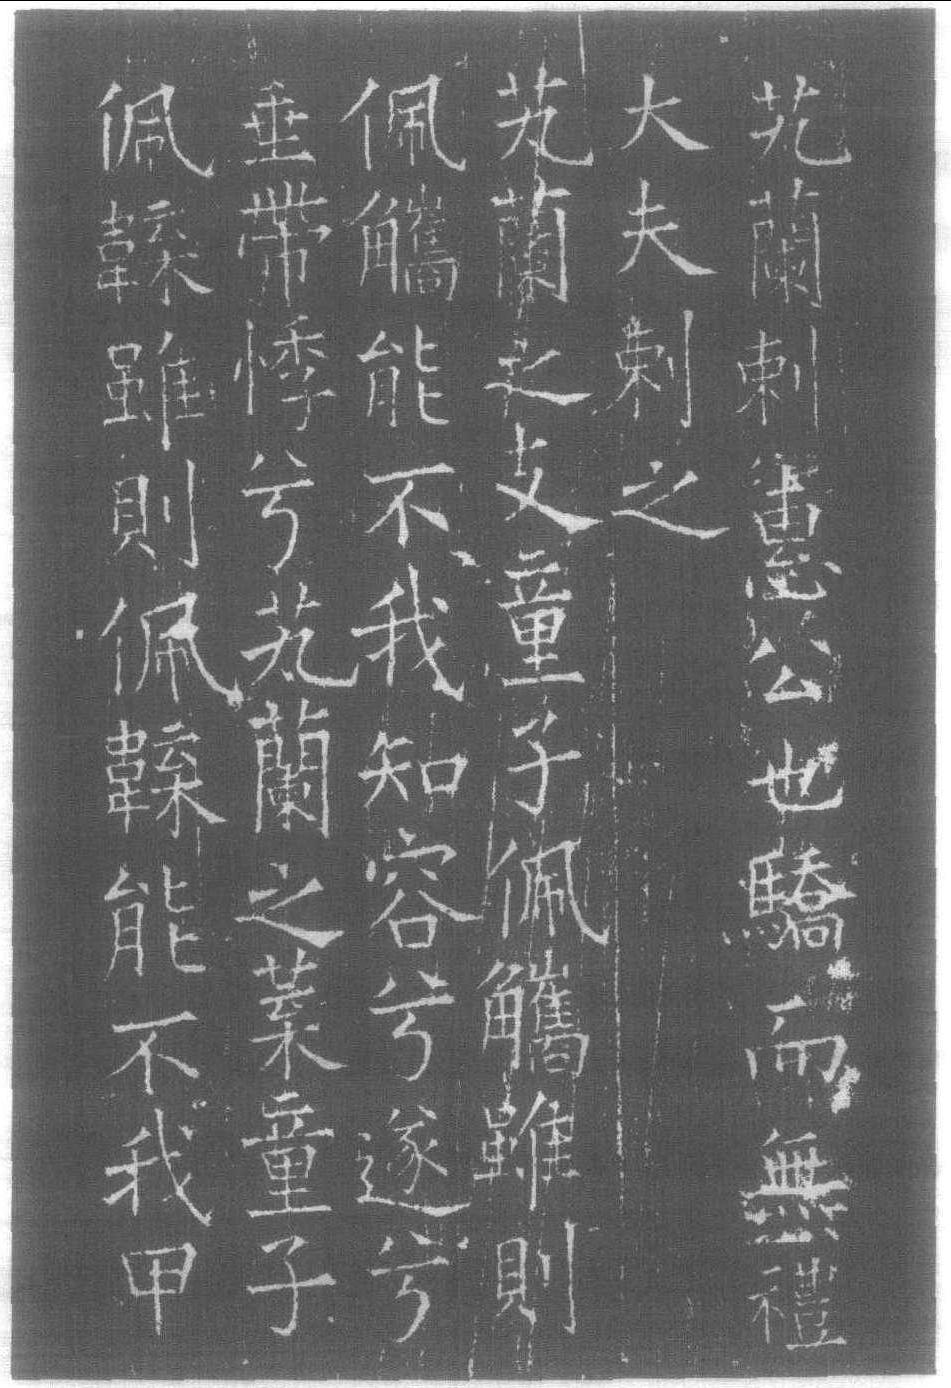 芄蘭刺惠公也驕而無禮
大夫刺之
芄蘭之支童子佩觿雖則
佩觿能不我知容兮遂兮
垂帶悸兮芄蘭之葉童子
佩韘雖則佩韘能不我甲